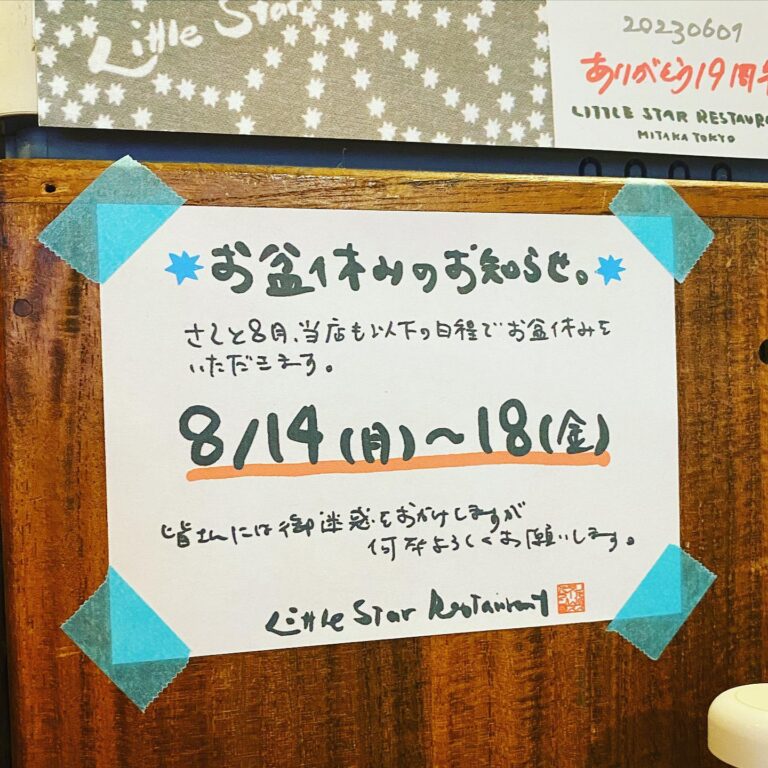 Little Star
20230609
ありがとう19周年
LITTLE STAR RESTAURA
MITAKA TOKYO
お盆休みのお知らせ。
さてと8月、当店も以下の日程でお盆休みを
いただきます。
8/14(月)〜18(金)
皆さんには御迷惑をおかけしますが
何卒よろしくお願いします。
Little Star Restaurant